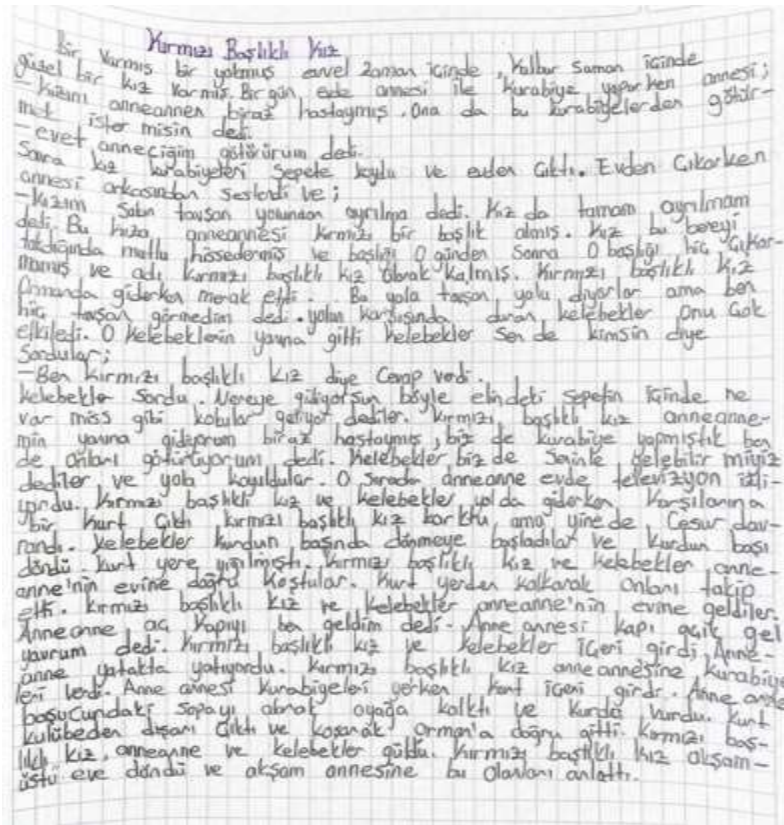 Kırmızı Başlıklı Kız
Bir Varmış bir yokmuş evvel Zaman içinde, Kalbur Saman içinde
güzel bir kız Varmış. Bir gün evde annesi ile kurabiye yaparken annesi;
-Kızım anneannen biraz hastaymış. Ona da bu kurabiyelerden götür-
mek ister misin dedi.
-evet anneciğim götürürüm dedi.
Sonra kız kurabiyeleri Sepete koydu ve evden Çıktı. Evden Çıkarken
annesi arkasından Seslendi ve;
-Kızım Sakın tavşan yolundan ayrılma dedi. Kız da tamam ayrılmam
dedi. Bu kıza anneannesi kırmızı bir başlık almış. Kız bu bereyi
takdığında mutlu hissedermiş ve başlığı O günden Sonra O başlığı hiç Çıkar-
mamış ve adı kırmızı başlıklı kız olarak kalmış. Kırmızı başlıklı kız
Ormanda giderken merak etti. Bu yola tavşan yolu diyorlar ama ben
hiç tavşan görmedim dedi. yolun karşısında duran kelebekler Onu Çok
etkiledi. O kelebeklerin yanına gitti kelebekler Sen de kimsin diye
Sordular;
-Ben kırmızı başlıklı kız diye Cevap verdi.
kelebekler Sordu. Nereye gidiyorsun böyle elindeki sepetin içinde ne
var miss gibi kokular geliyor dediler. kırmızı başlıklı kız anneanne-
min yanına gidiyorum biraz hastaymış, biz de kurabiye yapmıştık ben
de onları götürüyorum dedi. Kelebekler biz de Seninle gelebilir miyiz
dediler ve yola koyuldular. O Sırada anneanne evde televizyon izli-
yordu. Kırmızı başlıklı kız ve kelebekler yolda giderken Karşılarına
bir Kurt Çıktı kırmızı başlıklı kız korktu, ama yine de Cesur dav-
randı. Kelebekler kurdun başında dönmeye başladılar ve kurdun başı
döndü. Kurt yere yığılmıştı. Kırmızı başlıklı kız ve kelebekler anne-
anne'nin evine doğru Koştular. Kurt yerden kalkarak Onları takip
etti. Kırmızı başlıklı kız ve kelebekler anneanne'nin evine geldiler.
Anneanne aç Kapıyı ben geldim dedi. Anne annesi kapı açık gel
yavrum dedi. Kırmızı başlıklı kız ve kelebekler İçeri girdi, Anne-
anne yatakta yatıyordu. Kırmızı başlıklı kız anneannesine kurabiye
leri verdi. Anne annesi kurabiyeleri yerken kurt içeri girdi. Anne anne
başucundaki Sopayı alarak ayağa kalktı ve kurda vurdu. Kurt
kulübeden dışarı Çıktı ve koşarak orman'a doğru gitti. Kırmızı baş-
lıklı kız, anneanne ve kelebekler güldü. Kırmızı başlıklı kız akşam-
üstü eve döndü ve akşam annesine bu Olanları anlattı.